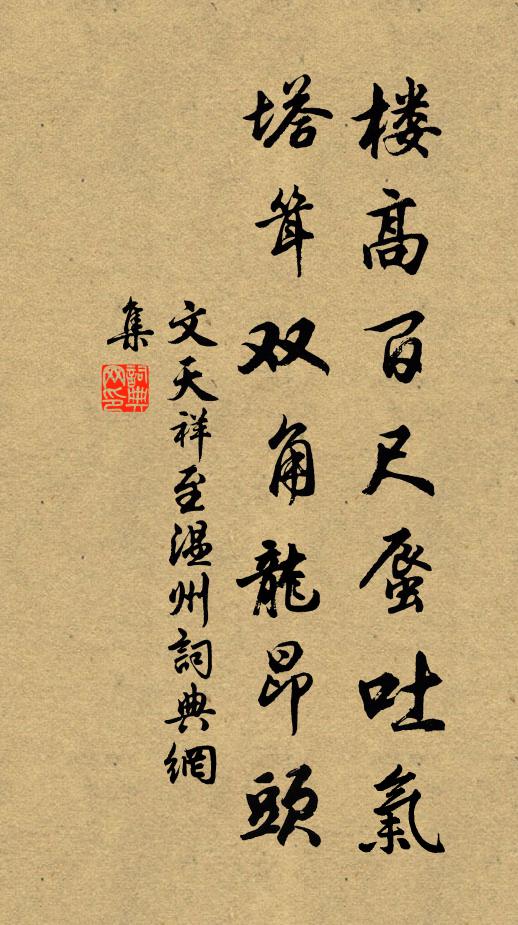 楼高百尺蜃吐氣
塔耸双角龍昂頭
文天祥至温州詞典網
集
詞典網印